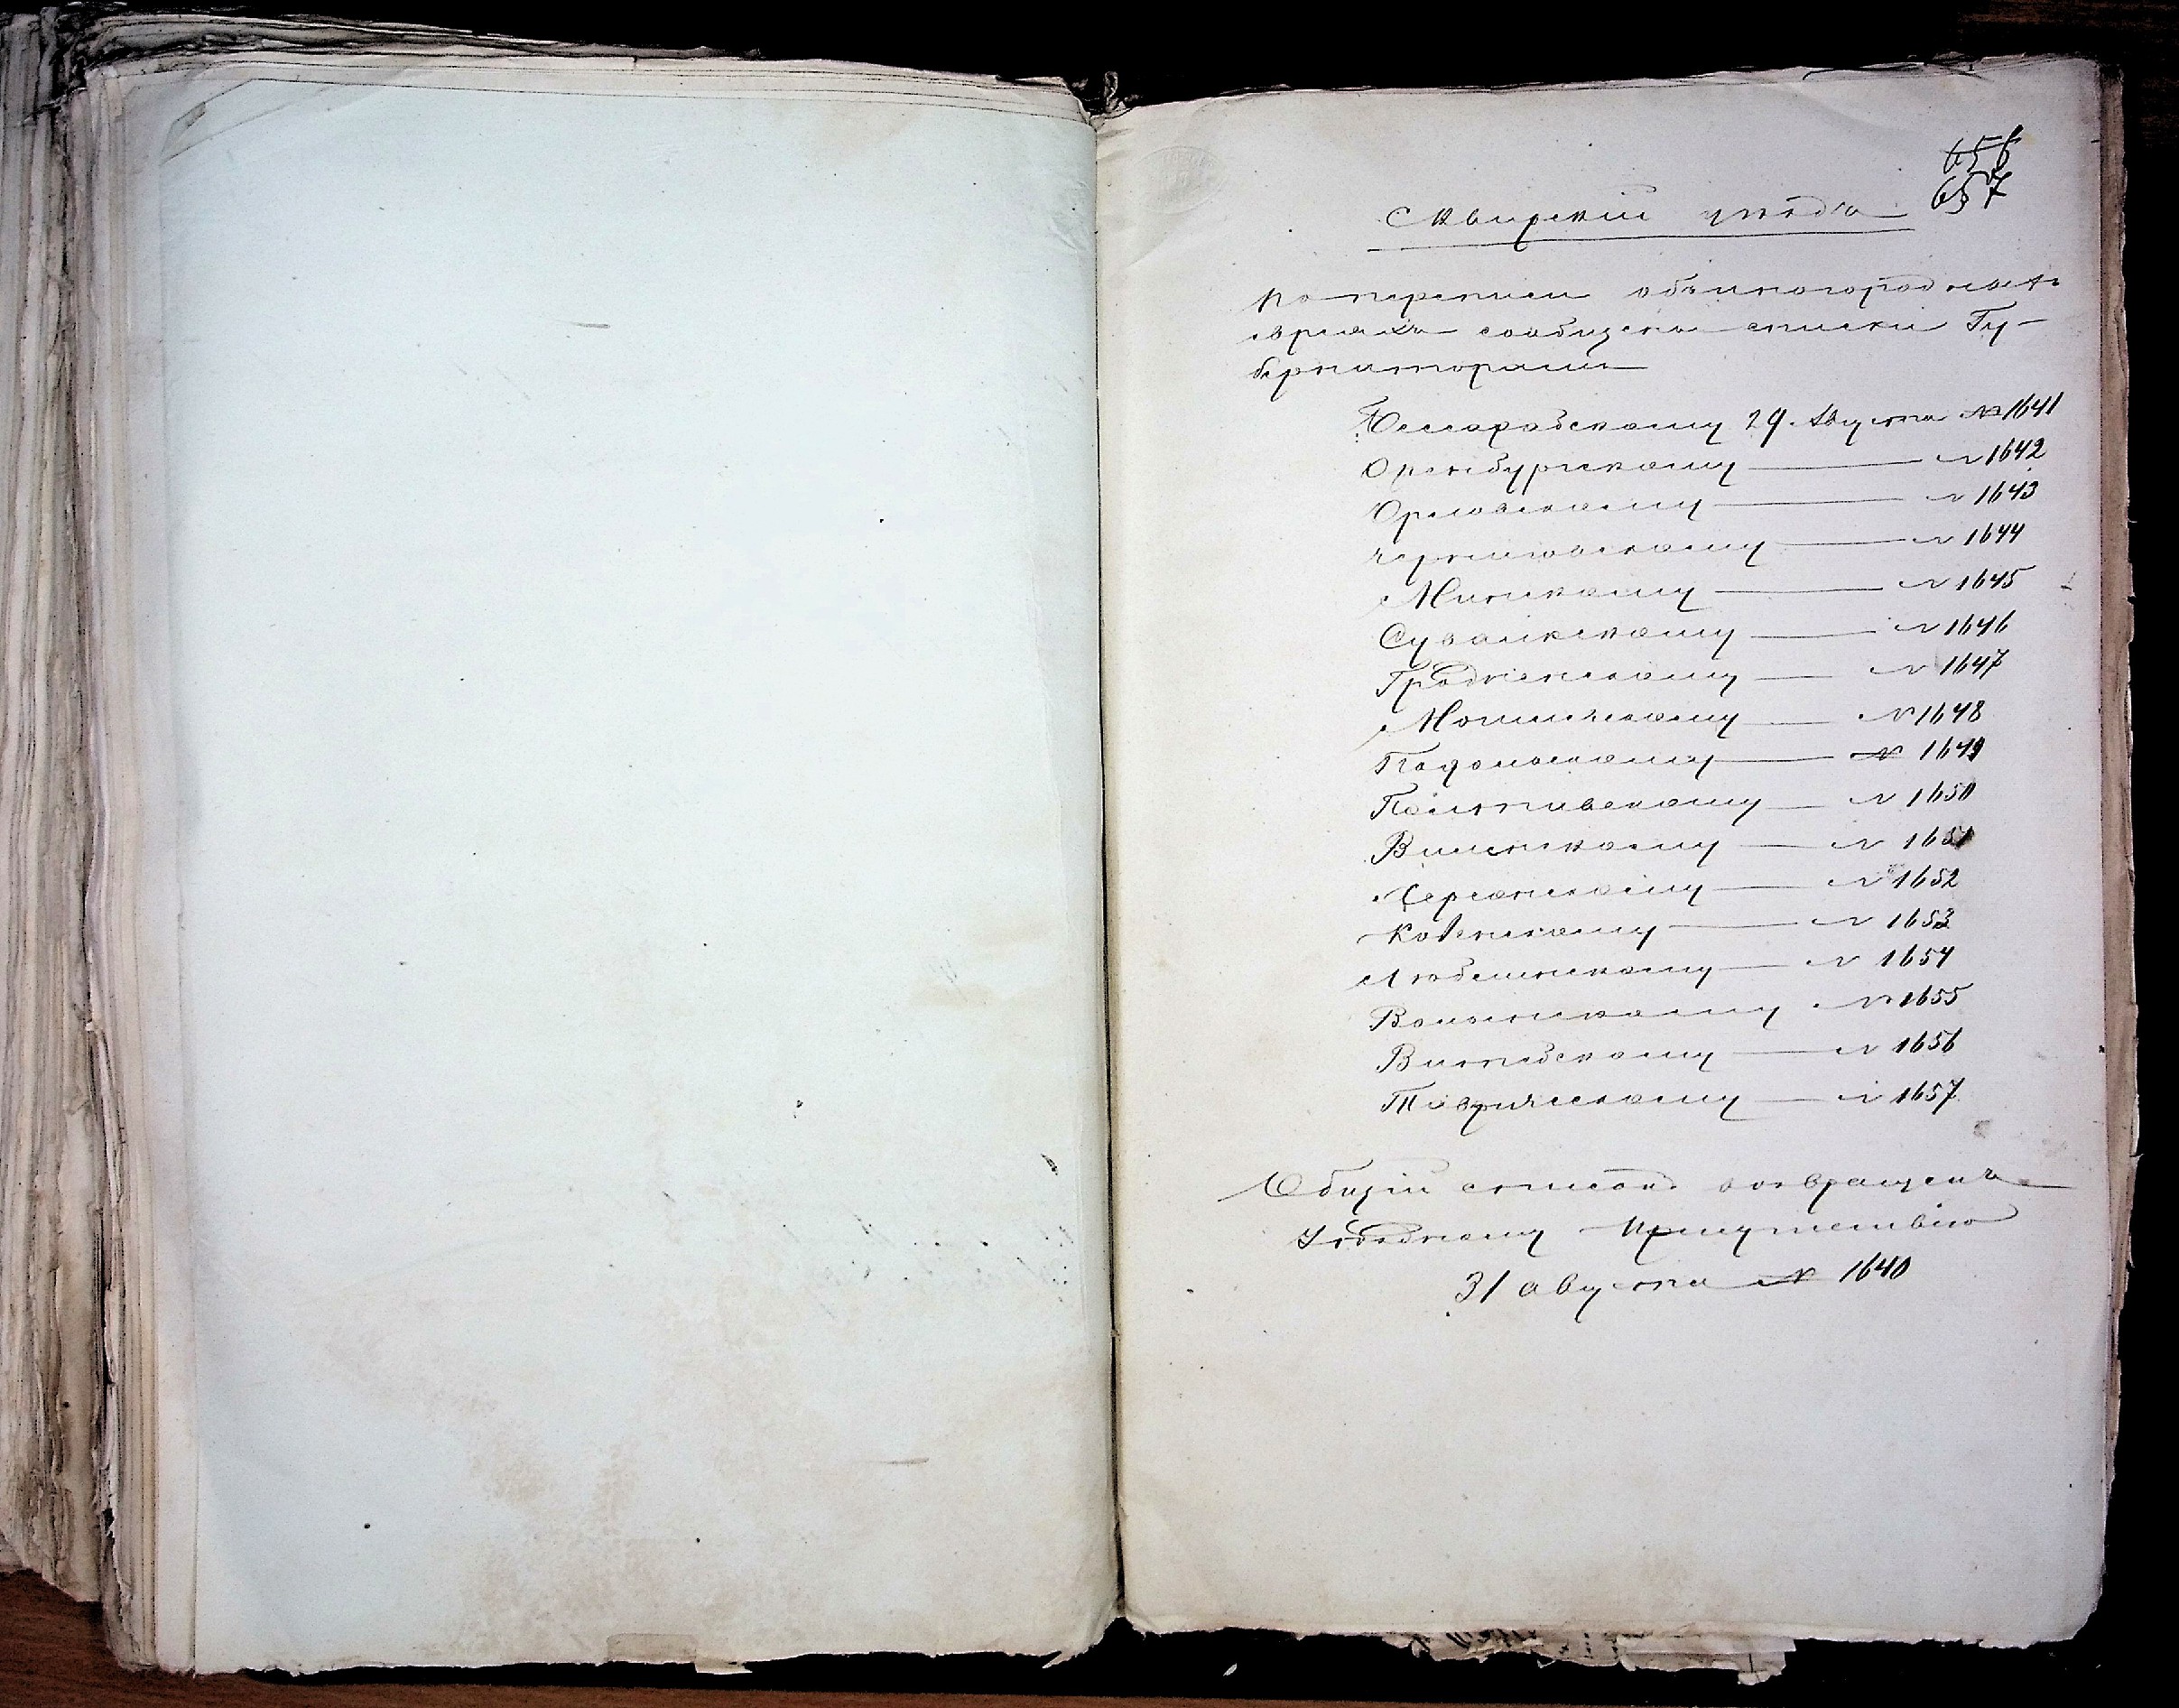 656
657
Сквирскій уѣздъ
По переписи объ иногороднихъ
евреяхъ сообщены списки Гу-
бернаторамъ
Бессарабскому 29 Августа № 1641
Оренбургскому — № 1642
Орловскому — № 1643
Черниговскому — № 1644
Минскому — № 1645
Сувалкскому — № 1646
Гродненскому — № 1647
Могилевскому — № 1648
Подольскому — № 1649
Полтавскому — № 1650
Виленскому — № 1651
Херсонскому — № 1652
Ковенскому — № 1653
Люблинскому — № 1654
Волынскому № 1655
Витебскому — № 1656
Таврическому — № 1657
Общій списокъ возвращенъ
Уѣздному Присутствію
31 августа № 1640